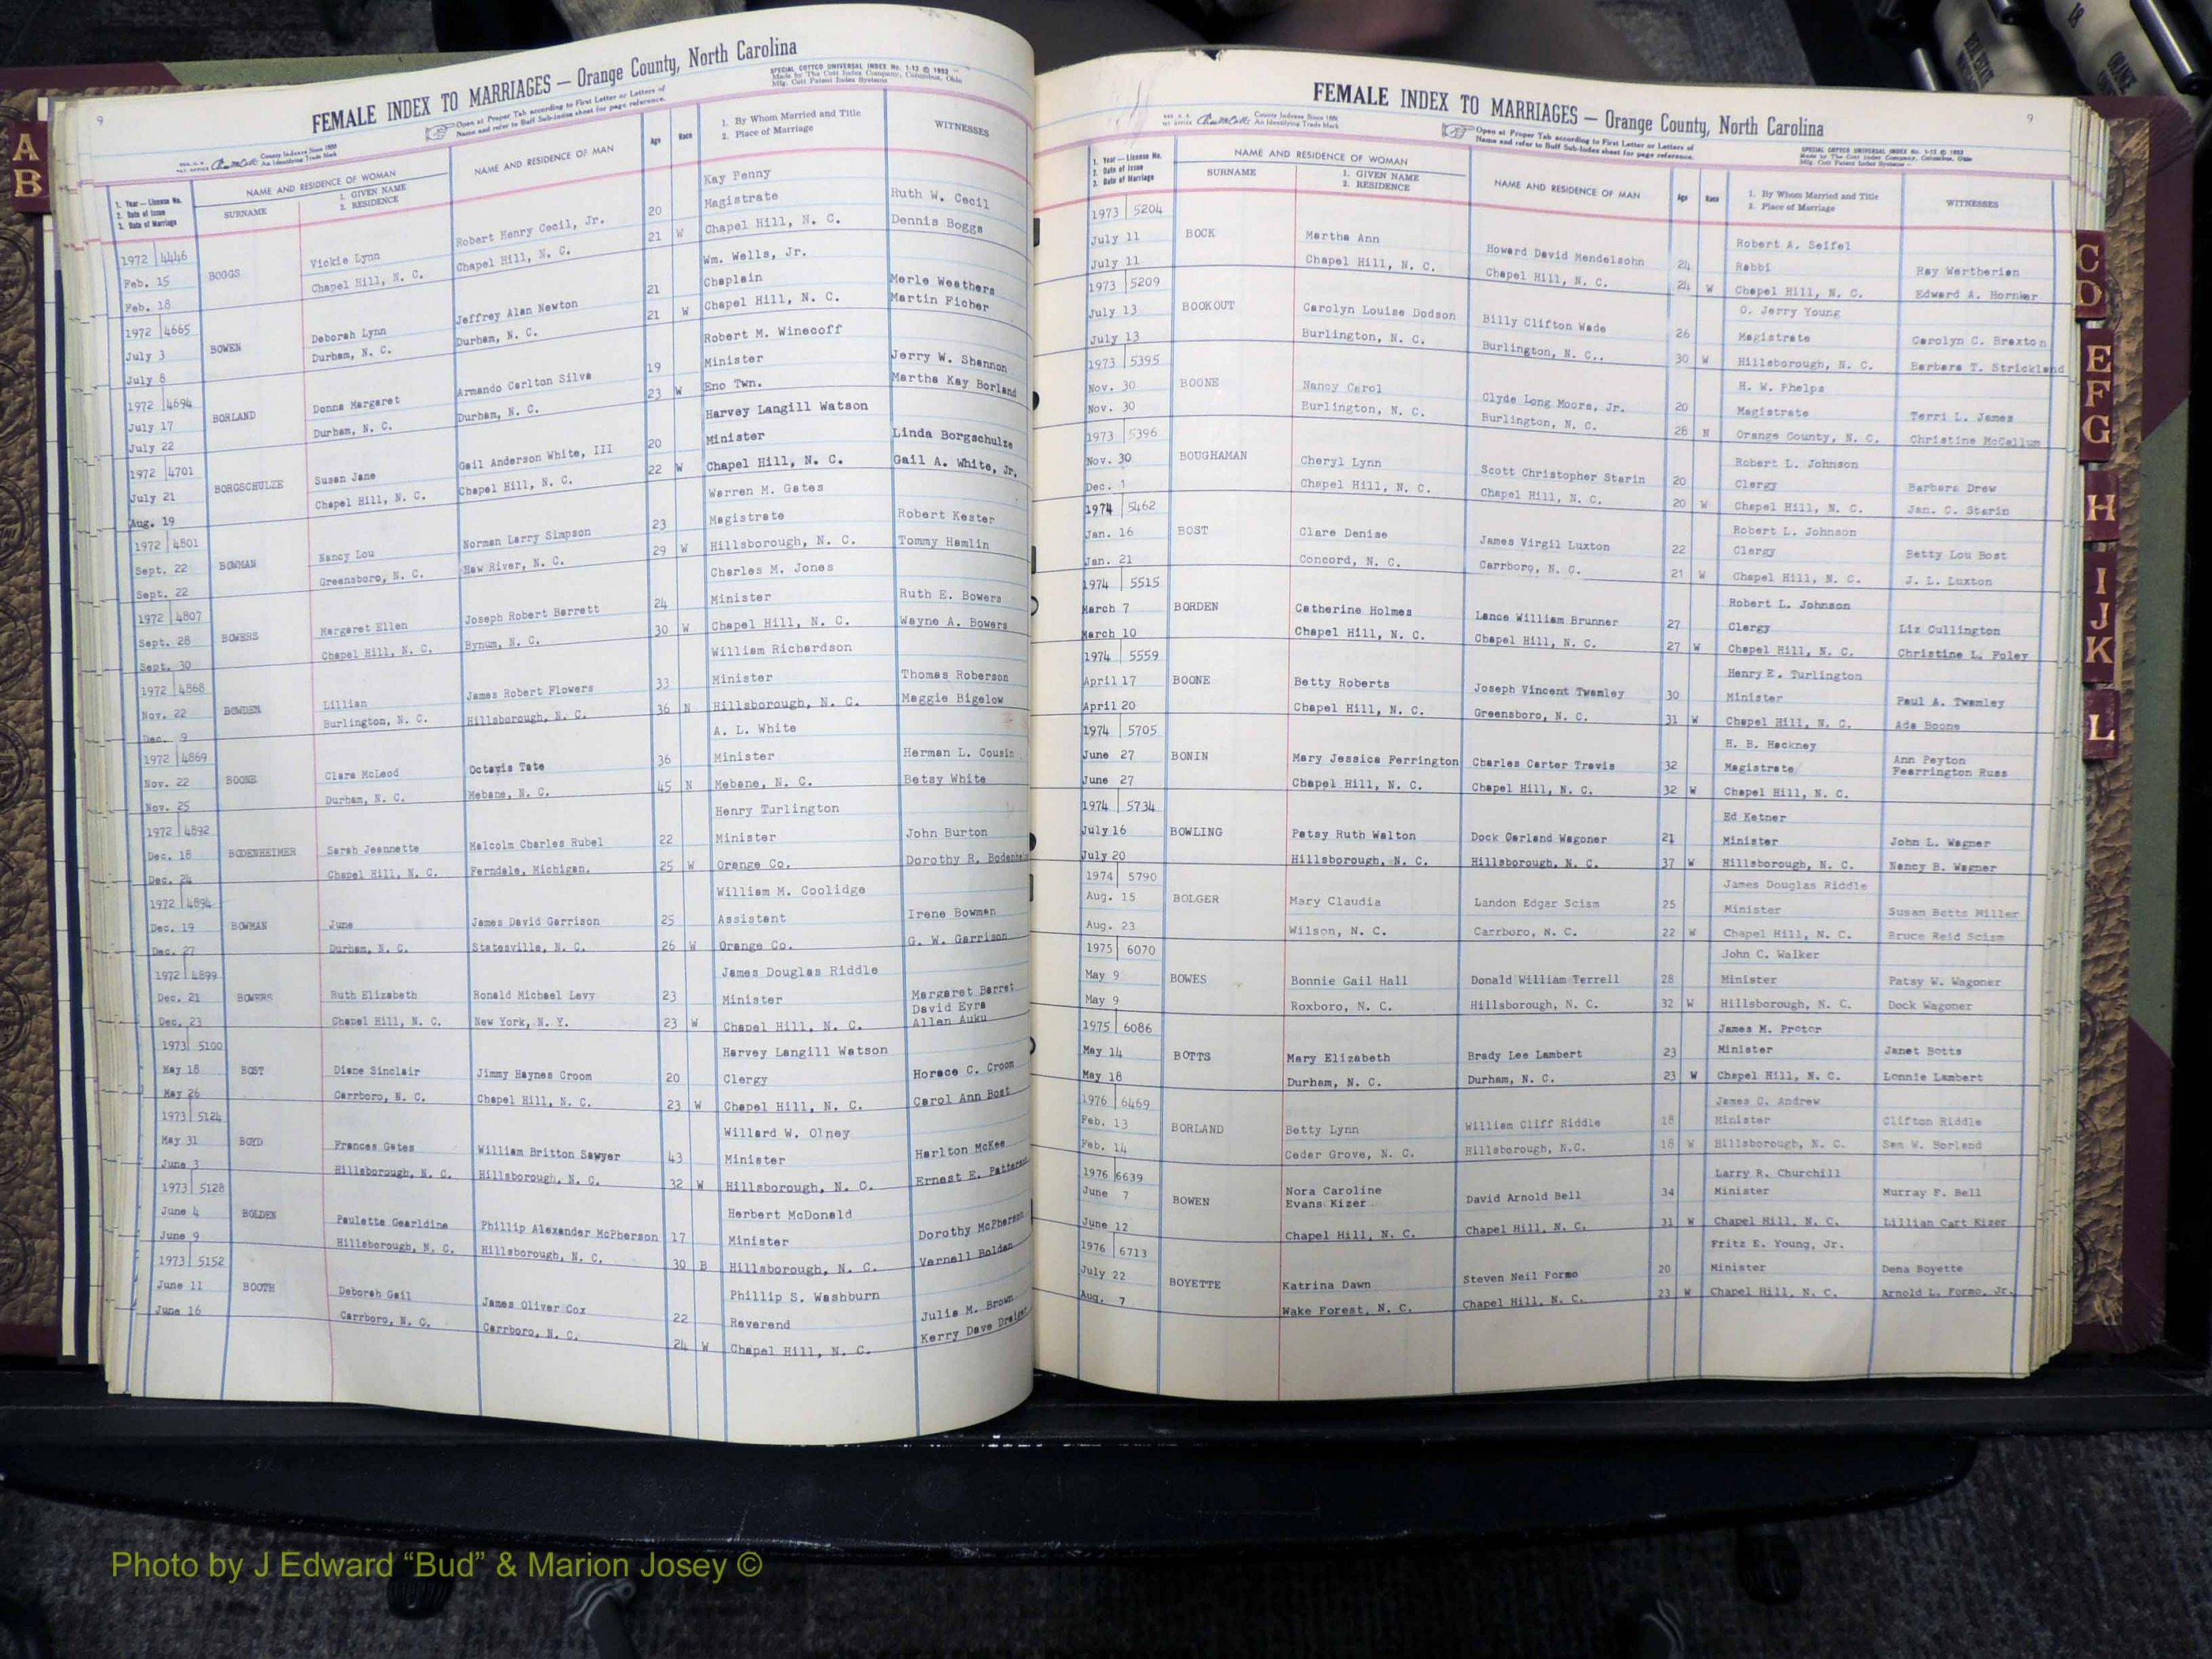 9
FEMALE INDEX TO MARRIAGES — Orange County, North Carolina
SPECIAL COTTCO UNIVERSAL INDEX No. 1-12 © 1952
Made by The Cott Index Company, Columbus, Ohio
Mfg. Cott Patent Index Systems
County Indexes Since 1888
An Identifying Trade Mark
Open at Proper Tab according to First Letter or Letters of
Name and refer to Buff Sub-Index sheet for page reference.
1. Year — License No.
2. Date of Issue
3. Date of Marriage
NAME AND RESIDENCE OF WOMAN
SURNAME
1. GIVEN NAME
2. RESIDENCE
NAME AND RESIDENCE OF MAN
Age
Race
1. By Whom Married and Title
2. Place of Marriage
WITNESSES
1972 4446 Kay Penny
Feb. 15 BOGGS Vickie Lynn Robert Henry Cecil, Jr. 20 Magistrate Ruth W. Cecil
Feb. 18 Chapel Hill, N. C. Chapel Hill, N. C. 21 W Chapel Hill, N. C. Dennis Boggs
1972 4665 Wm. Wells, Jr.
July 3 BOWEN Deborah Lynn Jeffrey Alan Newton 21 Chaplain Merle Weathers
July 8 Durham, N. C. Durham, N. C. 21 W Chapel Hill, N. C. Martin Ficher
1972 4694 Robert M. Winecoff
July 17 BORLAND Donna Margaret Armando Carlton Silva 19 Minister Jerry W. Shannon
July 22 Durham, N. C. Durham, N. C. 23 W Eno Twn. Martha Kay Borland
1972 4701 Harvey Langill Watson
July 21 BORGSCHULZE Susan Jane Gail Anderson White, III 20 Minister Linda Borgschulze
Aug. 19 Chapel Hill, N. C. Chapel Hill, N. C. 22 W Chapel Hill, N. C. Gail A. White, Jr.
1972 4801 Warren M. Gates
Sept. 22 BOWMAN Nancy Lou Norman Larry Simpson 23 Magistrate Robert Kester
Sept. 22 Greensboro, N. C. Haw River, N. C. 29 W Hillsborough, N. C. Tommy Hamlin
1972 4807 Charles M. Jones
Sept. 28 BOWERS Margaret Ellen Joseph Robert Barrett 24 Minister Ruth E. Bowers
Sept. 30 Chapel Hill, N. C. Bynum, N. C. 30 W Chapel Hill, N. C. Wayne A. Bowers
1972 4868 William Richardson
Nov. 22 BOWDEN Lillian James Robert Flowers 33 Minister Thomas Roberson
Dec. 9 Burlington, N. C. Hillsborough, N. C. 36 N Hillsborough, N. C. Maggie Bigelow
1972 4869 A. L. White
Nov. 22 BOONE Clara McLeod Octavis Tate 36 Minister Herman L. Cousin
Nov. 25 Durham, N. C. Mebane, N. C. 45 N Mebane, N. C. Betsy White
1972 4892 Henry Turlington
Dec. 18 BODENHEIMER Sarah Jeannette Malcolm Charles Rubel 22 Minister John Burton
Dec. 24 Chapel Hill, N. C. Ferndale, Michigan. 25 W Orange Co. Dorothy R.
1972 4894 William M. Coolidge
Dec. 19 BOWMAN June James David Garrison 25 Assistant Irene Bowman
Dec. 27 Durham, N. C. Statesville, N. C. 26 W Orange Co. G. W. Garrison
1972 4899 James Douglas Riddle
Dec. 21 BOWERS Ruth Elizabeth Ronald Michael Levy 23 Minister Margaret Barret
David Eyre
Dec. 23 Chapel Hill, N. C. New York, N. Y. 23 W Chapel Hill, N. C. Allan Auku
1973 5100 Harvey Langill Watson
May 18 BOST Diane Sinclair Jimmy Haynes Croom 20 Clergy Horace C. Croom
May 26 Carrboro, N. C. Chapel Hill, N. C. 23 W Chapel Hill, N. C. Carol Ann Bost
1973 5124 Willard W. Olney
May 31 BOYD Frances Gates William Britton Sawyer 43 Minister Harlton McKee
June 3 Hillsborough, N. C. Hillsborough, N. C. 32 W Hillsborough, N. C. Ernest E.
1973 5128 Herbert McDonald
June 4 BOLDEN Paulette Gearldine Phillip Alexander McPherson 17 Minister Dorothy McPherson
June 9 Hillsborough, N. C. Hillsborough, N. C. 30 B Hillsborough, N. C. Varnell Bolden
1973 5152 Phillip S. Washburn
June 11 BOOTH Deborah Gail James Oliver Cox 22 Reverend Julia M. Brown
June 16 Carrboro, N. C. Carrboro, N. C. 24 W Chapel Hill, N. C. Kerry Dave
9
FEMALE INDEX TO MARRIAGES — Orange County, North Carolina
County Indexes Since 1888
An Identifying Trade Mark
Open at Proper Tab according to First Letter or Letters of
Name and refer to Buff Sub-Index sheet for page reference.
SPECIAL COTTCO UNIVERSAL INDEX No. 1-12 © 1952
Made by The Cott Index Company, Columbus, Ohio
Mfg. Cott Patent Index Systems
1. Year — License No.
2. Date of Issue
3. Date of Marriage
NAME AND RESIDENCE OF WOMAN
SURNAME
1. GIVEN NAME
2. RESIDENCE
NAME AND RESIDENCE OF MAN
Age
Race
1. By Whom Married and Title
2. Place of Marriage
WITNESSES
1973 5204 Robert A. Seifel
July 11 BOCK Martha Ann Howard David Mendelsohn 24 Rabbi Ray Wertherian
July 11 Chapel Hill, N. C. Chapel Hill, N. C. 24 W Chapel Hill, N. C. Edward A. Horniker
1973 5209 O. Jerry Young
July 13 BOOKOUT Carolyn Louise Dodson Billy Clifton Wade 26 Magistrate Carolyn C. Braxton
July 13 Burlington, N. C. Burlington, N. C.. 30 W Hillsborough, N. C. Barbara T. Strickland
1973 5395 H. W. Phelps
Nov. 30 BOONE Nancy Carol Clyde Long Moore, Jr. 20 Magistrate Terri L. James
Nov. 30 Burlington, N. C. Burlington, N. C. 28 N Orange County, N. C. Christine McCallum
1973 5396 Robert L. Johnson
Nov. 30 BOUGHAMAN Cheryl Lynn Scott Christopher Starin 20 Clergy Barbara Drew
Dec. 1 Chapel Hill, N. C. Chapel Hill, N. C. 20 W Chapel Hill, N. C. Jan. C. Starin
1974 5462 Robert L. Johnson
Jan. 16 BOST Clare Denise James Virgil Luxton 22 Clergy Betty Lou Bost
Jan. 21 Concord, N. C. Carrboro, N. C. 21 W Chapel Hill, N. C. J. L. Luxton
1974 5515 Robert L. Johnson
March 7 BORDEN Catherine Holmes Lance William Brunner 27 Clergy Liz Cullington
March 10 Chapel Hill, N. C. Chapel Hill, N. C. 27 W Chapel Hill, N. C. Christine L. Foley
1974 5559 Henry E. Turlington
April 17 BOONE Betty Roberts Joseph Vincent Twamley 30 Minister Paul A. Twamley
April 20 Chapel Hill, N. C. Greensboro, N. C. 31 W Chapel Hill, N. C. Ada Boone
1974 5705 H. B. Hackney
June 27 BONIN Mary Jessica Perrington Charles Carter Travis 32 Magistrate Ann Peyton
Fearrington Russ
June 27 Chapel Hill, N. C. Chapel Hill, N. C. 32 W Chapel Hill, N. C.
1974 5734 Ed Ketner
July 16 BOWLING Patsy Ruth Walton Dock Garland Wagoner 21 Minister John L. Wagner
July 20 Hillsborough, N. C. Hillsborough, N. C. 37 W Hillsborough, N. C. Nancy B. Wagner
1974 5790 James Douglas Riddle
Aug. 15 BOLGER Mary Claudia Landon Edgar Scism 25 Minister Susan Betts Miller
Aug. 23 Wilson, N. C. Carrboro, N. C. 22 W Chapel Hill, N. C. Bruce Reid Scism
1975 6070 John C. Walker
May 9 BOWES Bonnie Gail Hall Donald William Terrell 28 Minister Patsy W. Wagoner
May 9 Roxboro, N. C. Hillsborough, N. C. 32 W Hillsborough, N. C. Dock Wagoner
1975 6086 James M. Protor
May 14 BOTTS Mary Elizabeth Brady Lee Lambert 23 Minister Janet Botts
May 18 Durham, N. C. Durham, N. C. 23 W Chapel Hill, N. C. Lonnie Lambert
1976 6469 James C. Andrew
Feb. 13 BORLAND Betty Lynn William Cliff Riddle 18 Minister Clifton Riddle
Feb. 14 Cedar Grove, N. C. Hillsborough, N.C. 18 W Hillsborough, N. C. Sam W. Borland
1976 6639 Larry R. Churchill
June 7 BOWEN Nora Caroline David Arnold Bell 34 Minister Murray F. Bell
Evans Kizer
June 12 Chapel Hill, N. C. Chapel Hill, N. C. 31 W Chapel Hill, N. C. Lillian Cart Kizer
1976 6713 Fritz E. Young, Jr.
July 22 BOYETTE Katrina Dawn Steven Neil Formo 20 Minister Dena Boyette
Aug. 7 Wake Forest, N. C. Chapel Hill, N. C. 23 W Chapel Hill, N. C. Arnold L. Formo, Jr.
A
B
C
D
E
F
G
H
I
J
K
L
18
Photo by J Edward “Bud” & Marion Josey ©